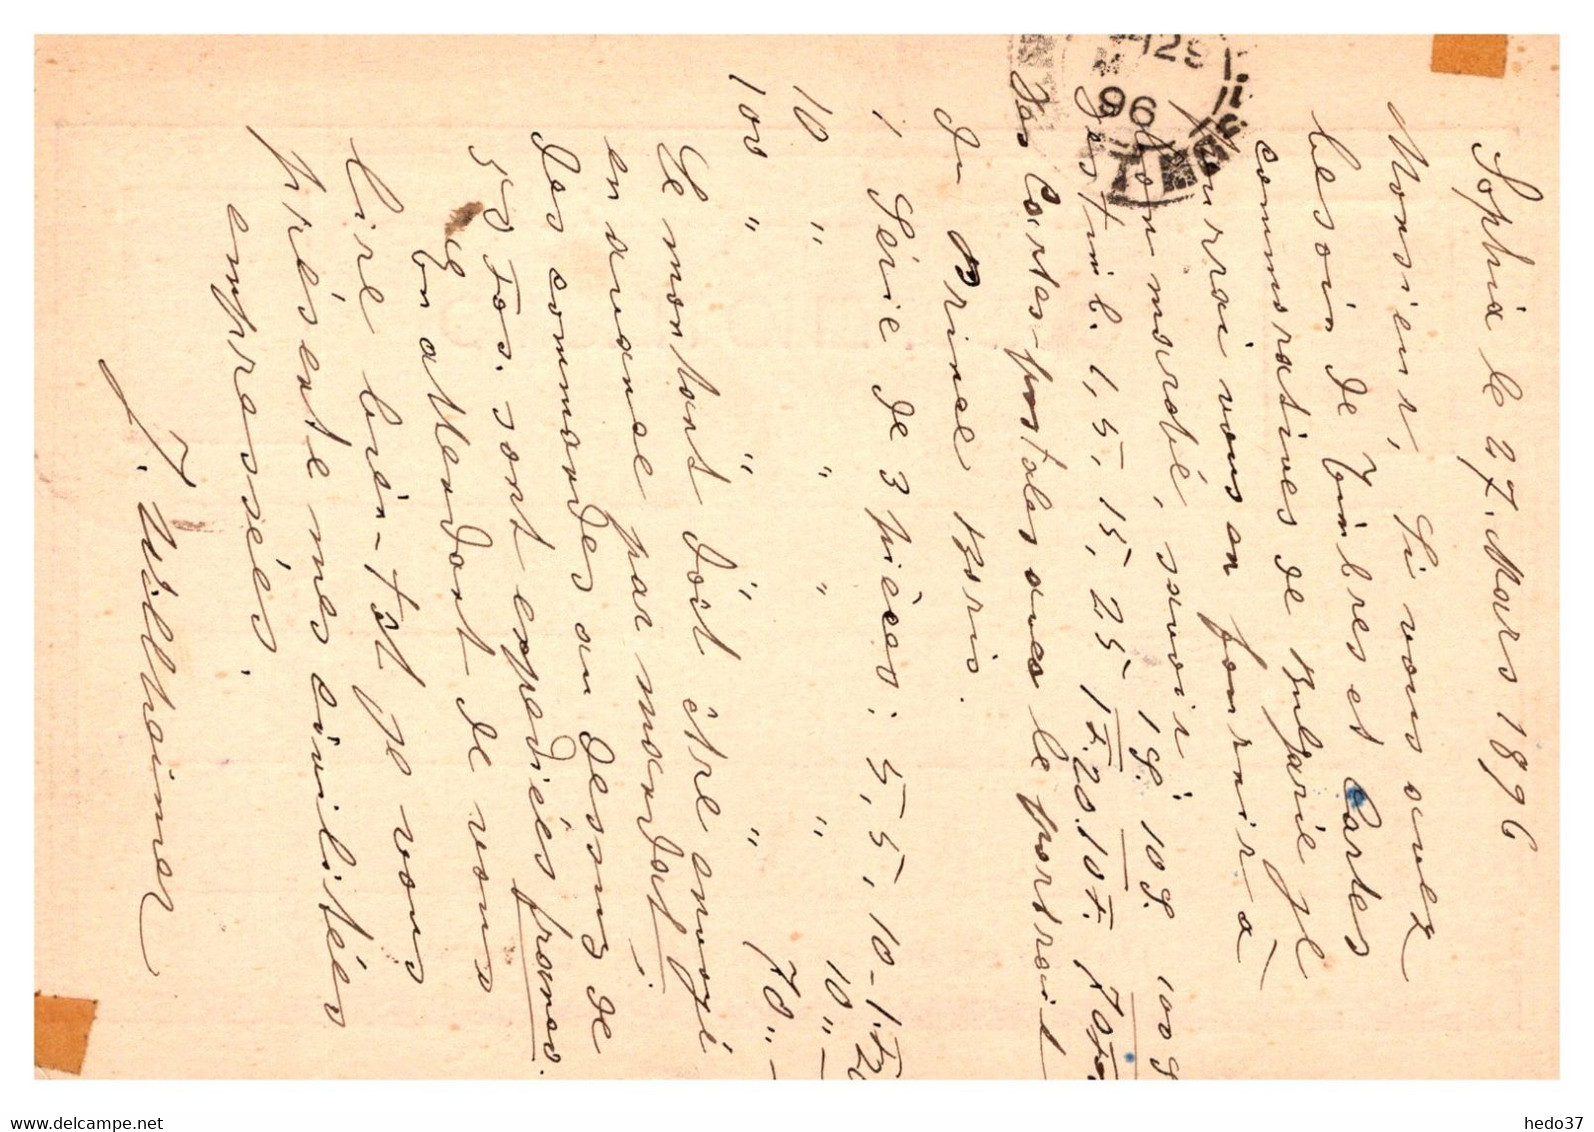 Sophia le 27. Mars 1896
Monsieur, Si vous avez
besoin de Timbres et Cartes
commoratives de Bulgarie je
pourrai vous en fournir à
bon marché, savoir:
1 S. 10 S. 100 S
Des timb. 1, 5, 15, 25 1F.20. 10F. 70F.
Des Cartes-postales avec le portrait
du Prince Boris.
1 Serie de 3 pièces: 5, 5, 10 - 1.F20
10 " " " " 10 " -
100 " " " " 70 " -
Le montant doit être envoyé
en avance par mandat;
Des commandes au dessus de
50 Fcs. sont expediés franco.
En attendant de vous
lire bien-tôt je vous
présente mes civilités
emprassées.
J. Willheimer
M 29
96
delcampe.net
hedo37